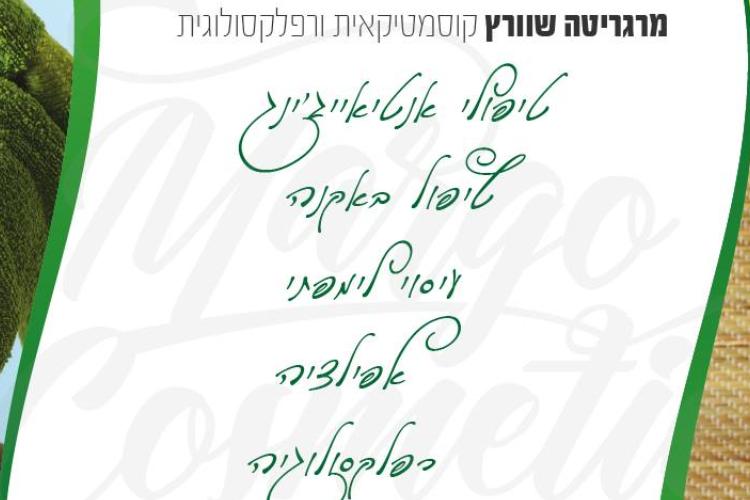 מרגריטה שוורץ קוסמטיקאית ורפלקסולוגית
טיפולי אנטיאייג'ינג
טיפול באקנה
עיסוי לימפתי
אפילציה
רפלקסולוגיה
Margo
Cosmeti